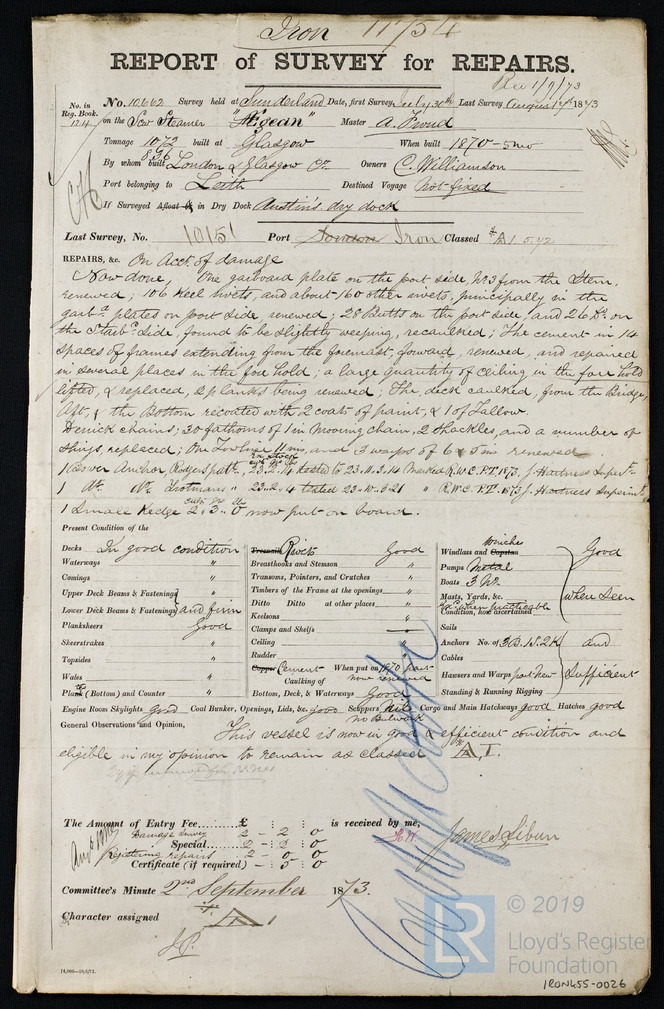 Iron 11754
REPORT of SURVEY for REPAIRS.
Rec 1/9/73
No. in Reg. Book. 124
No. 10,662 Survey held at Sunderland Date, first Survey July 30th Last Survey August 1873
on the Scw Steamer "Ægean" Master A. Proud
Tonnage 1072 built at Glasgow When built 1870-5mo
836
By whom built London & Glasgow Co. Owners C. Williamson
Port belonging to Leith Destined Voyage Not fixed
If Surveyed Afloat or in Dry Dock Austin's dry dock
Last Survey, No. 10151 Port London Iron Classed A1 5,72
REPAIRS, &c. On Acct. of damage
Now done, One garboard plate on the port side, No 3 from the Stem,
renewed; 106 Keel rivets, and about 160 other rivets, principally in the
garbd. plates on port side renewed; 28 Butts on the port side, and 26 Do. on
the Starbd. Side, found to be slightly weeping, recaulked; The cement in 14
spaces of frames extending from the foremast, forward, renewed, and repaired
in several places in the fore hold; a large quantity of ceiling in the fore hold
lifted, & replaced, planks being renewed; The deck caulked, from the Bridge,
Aft, & the Bottom recoated with 2 coats of paint, & 1 of Tallow.
Derrick chains; 30 fathoms of 1 in Mooring chain, 2 Shackles, and a number of
things replaced; One Towline 11 ins, and 3 warps of 6 & 5 ins renewed
ex Stock
1 Bower Anchor, Rodgers patt., 23.2.4 tested to 23.11.3.14 Marked R.W.C.P.T. 1873, J. Hartness Supert.
1 Do. Do. Trotmans " 23.2.4 tested 23.10.3.21 " R.W.C.P.T. 1873 J. Hartness Superint.
1 Small Kedge 2,3,0 now put on board.
Present Condition of the
Decks In good condition
Waterways "
Comings "
Upper Deck Beams & Fastenings
Lower Deck Beams & Fastenings and firm
Planksheers Good
Sheerstrakes "
Topsides "
Wales "
Plank (Bottom) and Counter "
Treenails Rivets Good
Breasthooks and Stemson "
Transoms, Pointers, and Crutches "
Timbers of the Frame at the openings "
Ditto Ditto at other places "
Keelsons "
Clamps and Shelfs
Ceiling "
Rudder "
Copper Cement When put on 1870 part
Caulking of now renewed
Bottom, Deck, & Waterways Good
Winches
Windlass and Capstan Good
Pumps Metal
Boats 3 No.
Masts, Yards, &c. when seen
Condition, how ascertained when practicable
Sails
Anchors No. of 3B.1S.2K and
Cables
Hausers and Warps part new Sufficient
Standing & Running Rigging
Engine Room Skylights good Coal Bunker, Openings, Lids, &c. good Scuppers Nil Cargo and Main Hatchways good Hatches good
no Bulwark
General Observations and Opinion,
This vessel is now in good & efficient condition and
eligible in my opinion to remain as classed A1.
The Amount of Entry Fee......£ : : is received by me,
Damage Survey 2 - 2 0
Special......
Registering repairs 2 - 0 0
Certificate (if required) .. - 5 0
James Sibun
Committee's Minute 2nd September 1873.
Character assigned A1
LR
© 2019
Lloyd's Register
Foundation
IRON455-0026